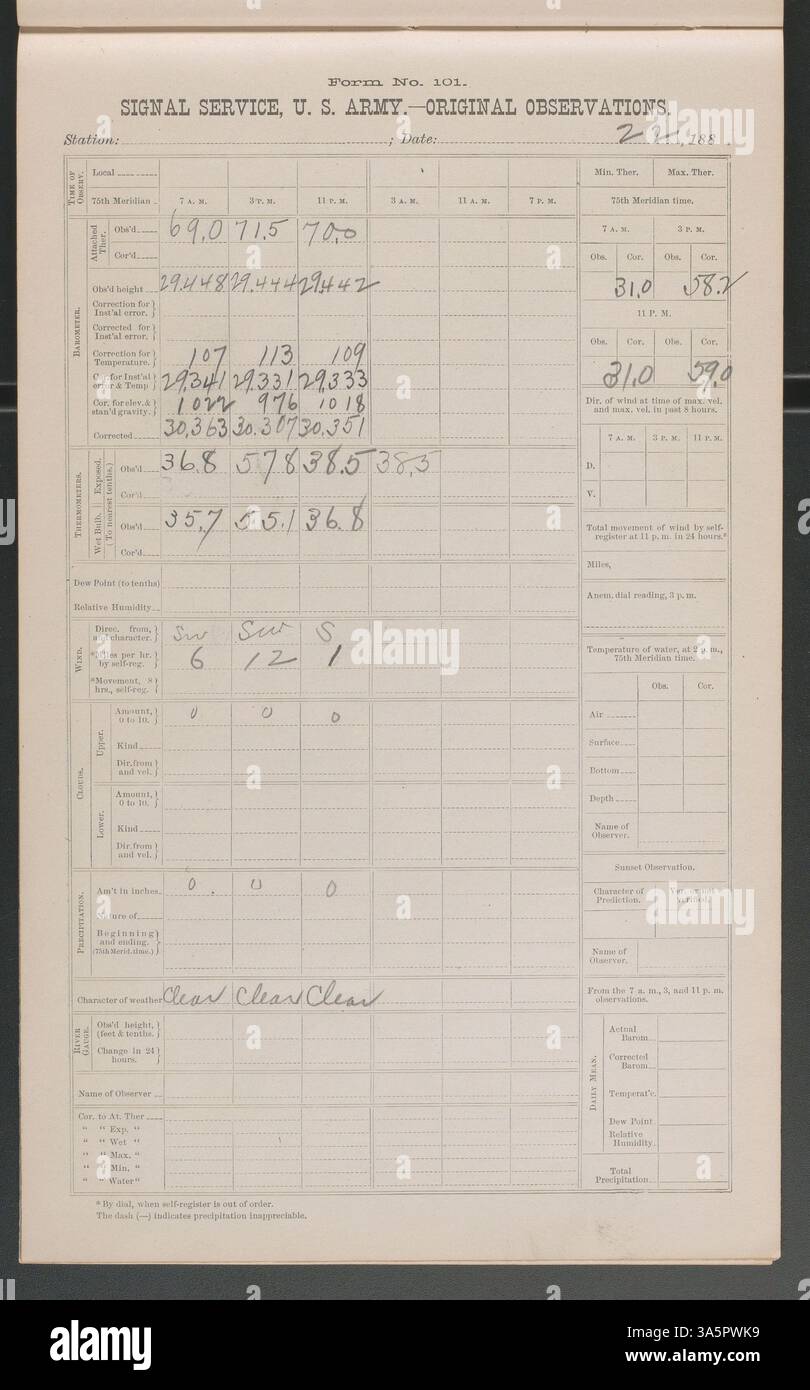 Form No. 101.
SIGNAL SERVICE, U. S. ARMY.—ORIGINAL OBSERVATIONS.
Station: ; Date: 22, 188 .
TIME OF OBSERV.
Local
75th Meridian 7 A. M. 3 P. M. 11 P. M. 3 A. M. 11 A. M. 7 P. M.
BAROMETER.
Attached Ther.
Obs'd 69.0 71.5 70.0
Cor'd
Obs'd height 29.448 29.444 29.442
Correction for Inst'al error.
Corrected for Inst'al error.
Correction for Temperature. 107 113 109
for Inst'al error & Temp 29.341 29.331 29.333
Cor. for elev. & stan'd gravity. 1022 976 1018
Corrected 30.363 30.307 30.351
THERMOMETERS.
Exposed.
Wet Bulb.
(To nearest tenths.)
Obs'd 36.8 57.8 38.5 38.5
Cor'd
Obs'd 35.7 55.1 36.8
Cor'd
Dew Point (to tenths)
Relative Humidity
WIND.
Direc. from, and character. SW SW S
*Miles per hr. by self-reg. 6 12 1
*Movement, 8 hrs., self-reg.
CLOUDS.
Upper.
Amount, 0 to 10. 0 0 0
Kind
Dir. from and vel.
Lower.
Amount, 0 to 10.
Kind
Dir. from and vel.
PRECIPITATION.
Am't in inches. 0. 0 0
Nature of
Beginning and ending. (75th Merid. time.)
Character of weather Clear Clear Clear
RIVER GAUGE.
Obs'd height, (feet & tenths.
Change in 24 hours.
Name of Observer
Cor. to At. Ther
“ “ Exp. “
“ “ Wet “
“ “ Max. “
“ “ Min. “
“ “ Water “
* By dial, when self-register is out of order.
The dash (—) indicates precipitation inappreciable.
Min. Ther. Max. Ther.
75th Meridian time.
7 A. M. 3 P. M.
Obs. Cor. Obs. Cor.
31.0 58.2
11 P. M.
Obs. Cor. Obs. Cor.
31.0 59.0
Dir. of wind at time of max. vel. and max. vel. in past 8 hours.
7 A. M. 3 P. M. 11 P. M.
D.
V.
Total movement of wind by self-register at 11 p. m. in 24 hours.*
Miles,
Anem. dial reading, 3 p. m.
Temperature of water, at 2 p. m., 75th Meridian time.
Obs. Cor.
Air
Surface
Bottom
Depth
Name of Observer.
Sunset Observation.
Character of Prediction.
verified.
Name of Observer.
From the 7 a. m., 3, and 11 p. m. observations.
DAILY MEAN.
Actual Barom.
Corrected Barom.
Temperat'e.
Dew Point
Relative Humidity.
Total Precipitation.
alamy
Image ID: 3A5PWK9
www.alamy.com